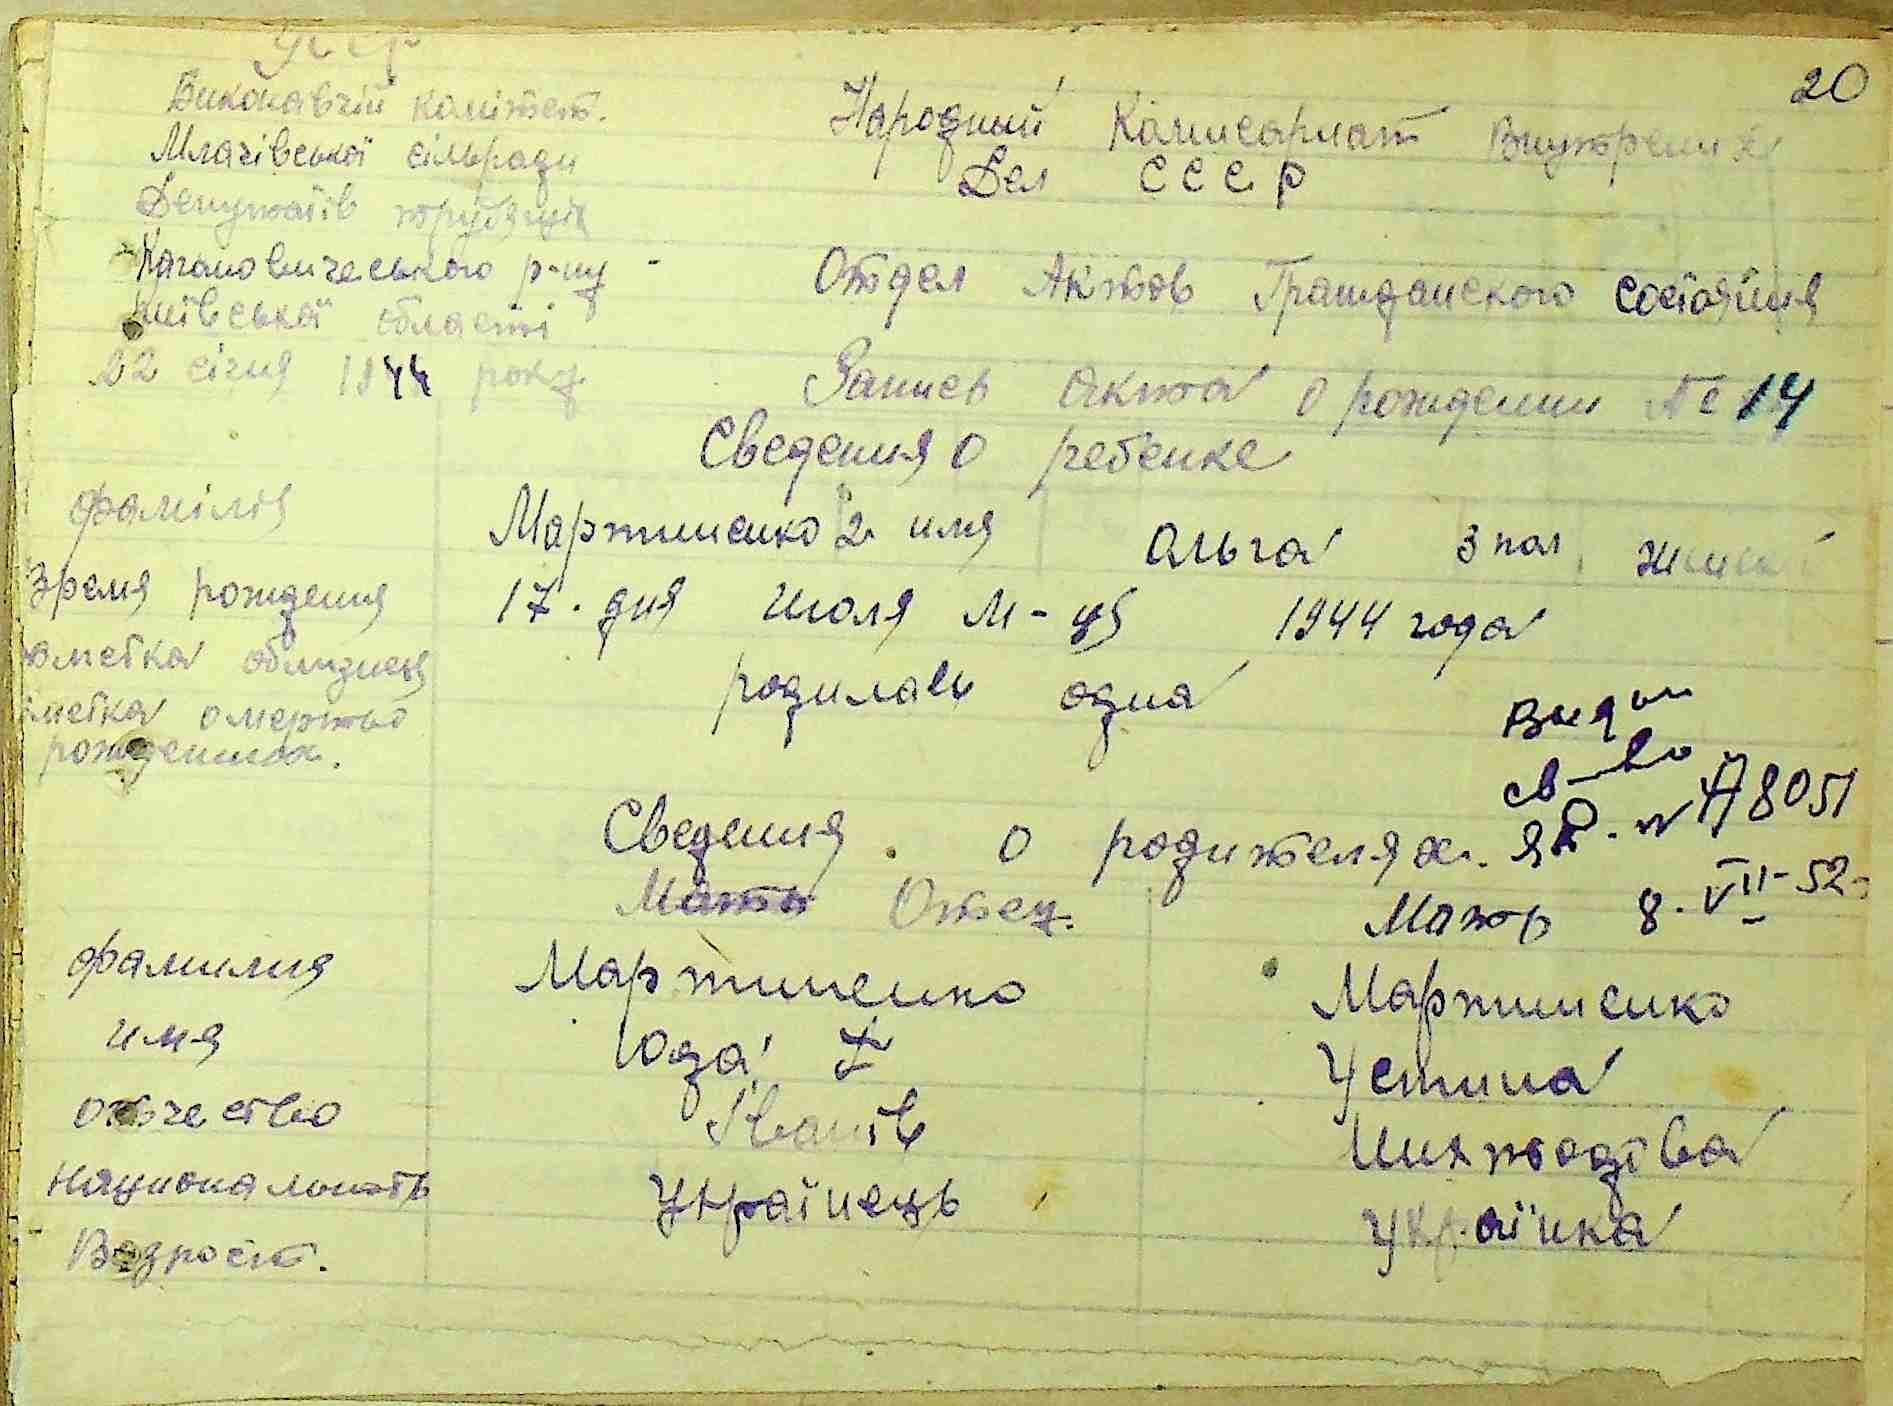 20
УССР
Виконавчій комітет.
Млачівської сільради
Депутатів трудящих
Кагановическького р-ну
Київської області
22 січня 1944 року
Народный Комисариат Внутрених
Дел СССР
Отдел Актов Гражданского состояния
Запись акта о рождении № 14
Сведения о ребенке
фамілія Мартиненко 2 имя Ольга 3 пол
Время рождения 17. дня июля м-ця 1944 года
ометка облизнецях родилась одна
метка о мертво
рожденных.
Выдан
св-во
№ 8051
8. VII-52
Сведения о родителях.
Мать Отец. Матр
фамилия Мартиненко Мартиненко
имя Юза Устина
отчество Іванів
Национальность Українець Українка
Возрост.